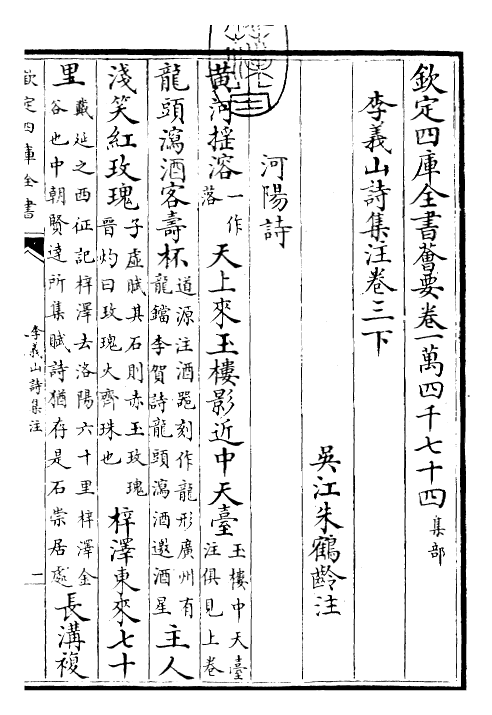 欽定四庫全書薈要卷一萬四千七十四 集部
李義山詩集注卷三下
吳江朱鶴齡注
河陽詩
黄河摇溶 一作落 天上來玉樓影近中天臺 玉樓中天臺注俱見上卷
龍頭瀉酒客壽杯 道源注酒器刻作龍形廣州有龍鐺李賀詩龍頭瀉酒邀酒星 主人
淺笑紅玫瑰 子虚賦其石則赤玉玫瑰晉灼曰玫瑰火齊珠也 梓澤東來七十
里 戴延之西征記梓澤去洛陽六十里梓澤金谷也中朝賢達所集賦詩猶存是石崇居處 長溝複
欽定四庫全書
李義山詩集注
一